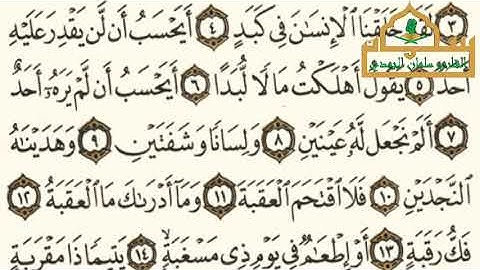 ٣ لَقَدْ خَلَقْنَا الْإِنسَانَ فِي كَبَدٍ ٤ أَيَحْسَبُ أَن لَّن يَقْدِرَ عَلَيْهِ
أَحَدٌ ٥ يَقُولُ أَهْلَكْتُ مَالًا لُّبَدًا ٦ أَيَحْسَبُ أَن لَّمْ يَرَهُۥ أَحَدٌ
٧ أَلَمْ نَجْعَل لَّهُۥ عَيْنَيْنِ ٨ وَلِسَانًا وَشَفَتَيْنِ ٩ وَهَدَيْنَٰهُ
النَّجْدَيْنِ ١٠ فَلَا اقْتَحَمَ الْعَقَبَةَ ١١ وَمَا أَدْرَىٰكَ مَا الْعَقَبَةُ ١٢
فَكُّ رَقَبَةٍ ١٣ أَوْ إِطْعَٰمٌ فِي يَوْمٍ ذِي مَسْغَبَةٍ ١٤ يَتِيمًا ذَا مَقْرَبَةٍ